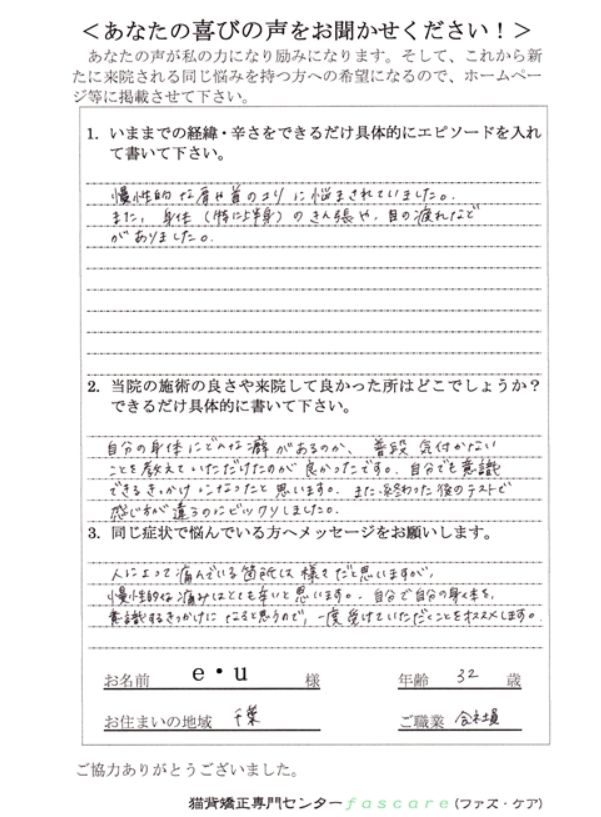 ＜あなたの喜びの声をお聞かせください！＞
あなたの声が私の力になり励みになります。そして、これから新
たに来院される同じ悩みを持つ方への希望になるので、ホームペー
ジ等に掲載させて下さい。
1. いままでの経緯・辛さをできるだけ具体的にエピソードを入れ
て書いて下さい。
慢性的な肩や首のコリに悩まされていました。
また、身体（特に上半身）のきん張や、目の疲れなど
がありました。
2. 当院の施術の良さや来院して良かった所はどこでしょうか？
できるだけ具体的に書いて下さい。
自分の身体にどんな癖があるのか、普段気付かない
ことを教えていただけたのが良かったです。自分でも意識
できるきっかけになったと思います。また、終わった後のテストで
感じ方が違うのにビックリしました。
3. 同じ症状で悩んでいる方へメッセージをお願いします。
人によって痛んでいる箇所は様々だと思いますが、
慢性的な痛みはとても辛いと思います。自分で自分の身体を、
意識するきっかけになると思うので、一度受けていただくことをオススメします。
お名前 e・u 様 年齢 32 歳
お住まいの地域 千葉 ご職業 会社員
ご協力ありがとうございました。
猫背矯正専門センターfascare（ファス・ケア）